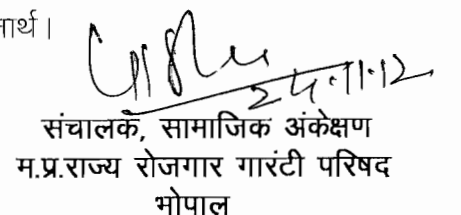 नार्थ।
24.11.12
संचालक, सामाजिक अंकेक्षण
म.प्र.राज्य रोजगार गारंटी परिषद
भोपाल